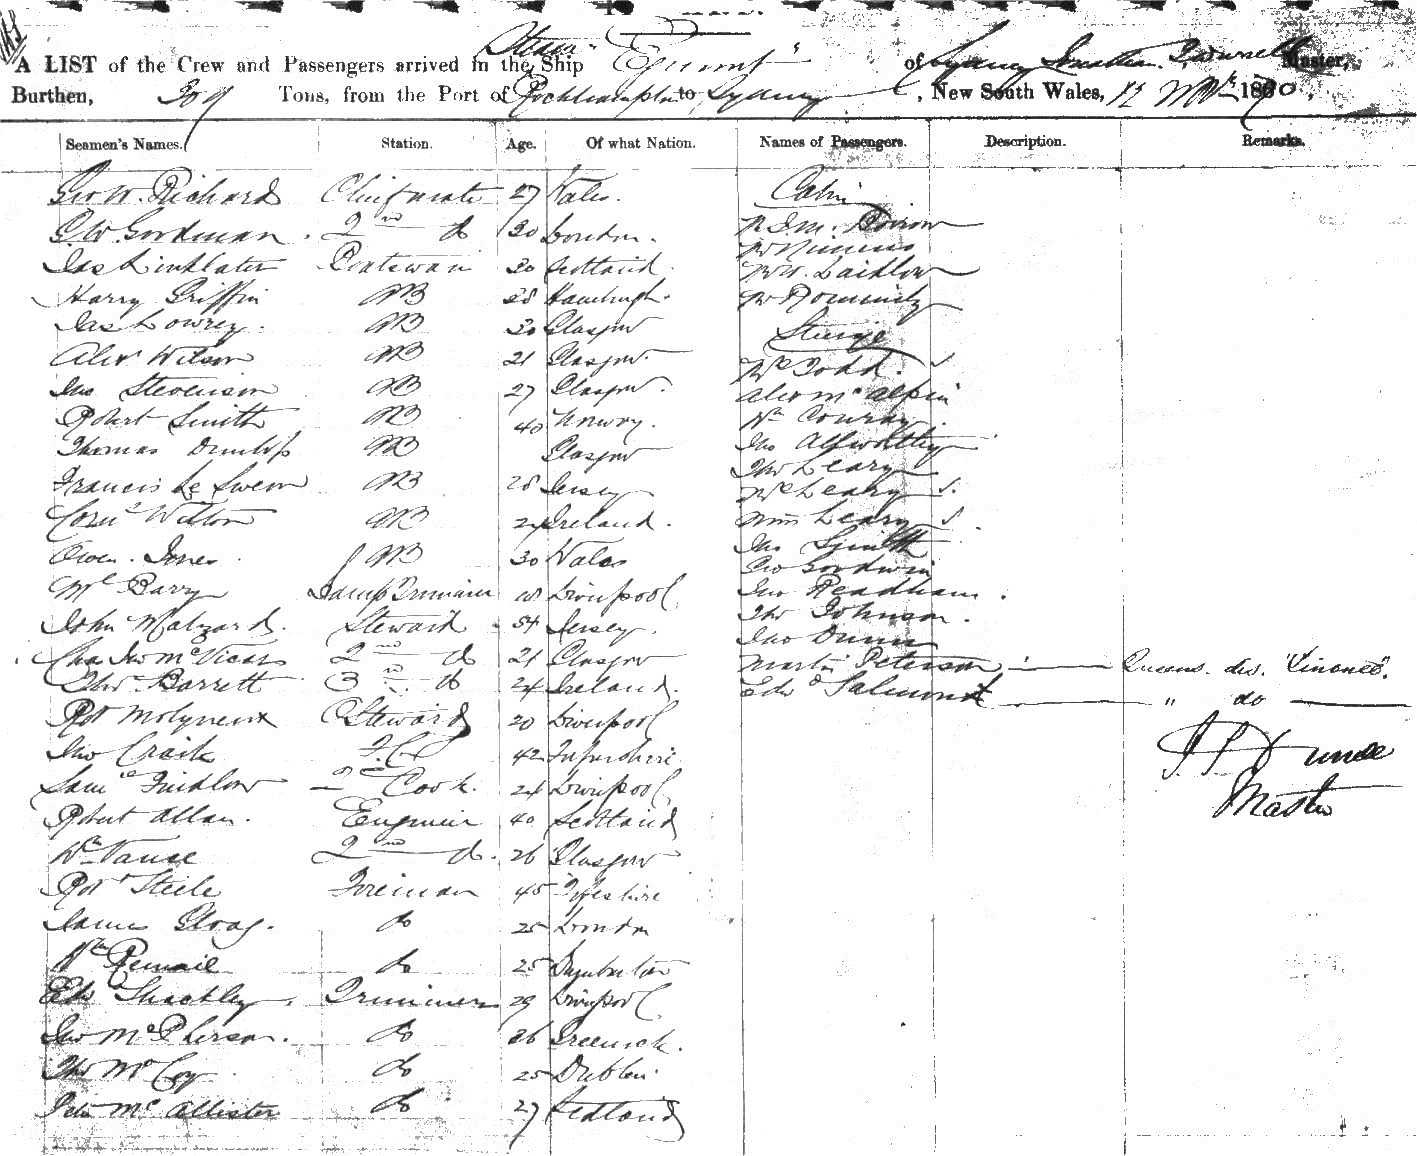 Steam
A LIST of the Crew and Passengers arrived in the Ship Egmont of Sydney Master,
Burthen, 309 Tons, from the Port of Rockhampton to Sydney, New South Wales, 12 1870
Seamen's Names. Station. Age. Of what Nation. Names of Passengers. Description. Remarks.
Geo W. Richard Chief mate 27 Wales. Cabin
G. W. Goodman 2nd do 30 London.
Jas Linklater Boatswain 30 Scotland. Mr W. Laidlow
Harry Griffin AB 28 Hamburgh.
Jas Lowrey AB 30 Glasgow Steerage
Alexr Wilson AB 21 Glasgow Mrs Todd.
Jno Stevenson AB 27 Glasgow. Alex McAlpin
Robert Smith AB 40 Norway. Wm Conray
Thomas Dunlop AB Glasgow Jno
Francis Le Swem AB 28 Jersey Thos Leary
Corns Wilton AB 24 Ireland. Mrs Leary
Owen Jones AB 30 Wales Wm Leary
Ml Barry Lamp Trimmer 18 Liverpool Jno Smith
John Malzard. Steward 54 Jersey. Geo Goodwin
Chas Jno McVicars 2nd do 21 Glasgow Jno Readham
Thos Barrett 3 do 24 Ireland. Thos Johnson.
Robt Molyneux Steward 20 Liverpool Jno Dunn
Jno Craik F.C. 42 Martin Peterson
Saml Findlow 2nd Cook. 24 Liverpool Edwd Salmond " do
Robert Allan. Engineer 40 Scotland Master
Wm Vause 2nd do. 26 Glasgow
Robt Steele Fireman 45 Fifeshire
James Gloag. do 25 London
Wm do 25
Edw Shackley. Trimmer 29 Liverpool
Jno McPherson. do 26 Greenock.
Thos McCoy do 25 Dublin
Peter McAllister do 27 Scotland